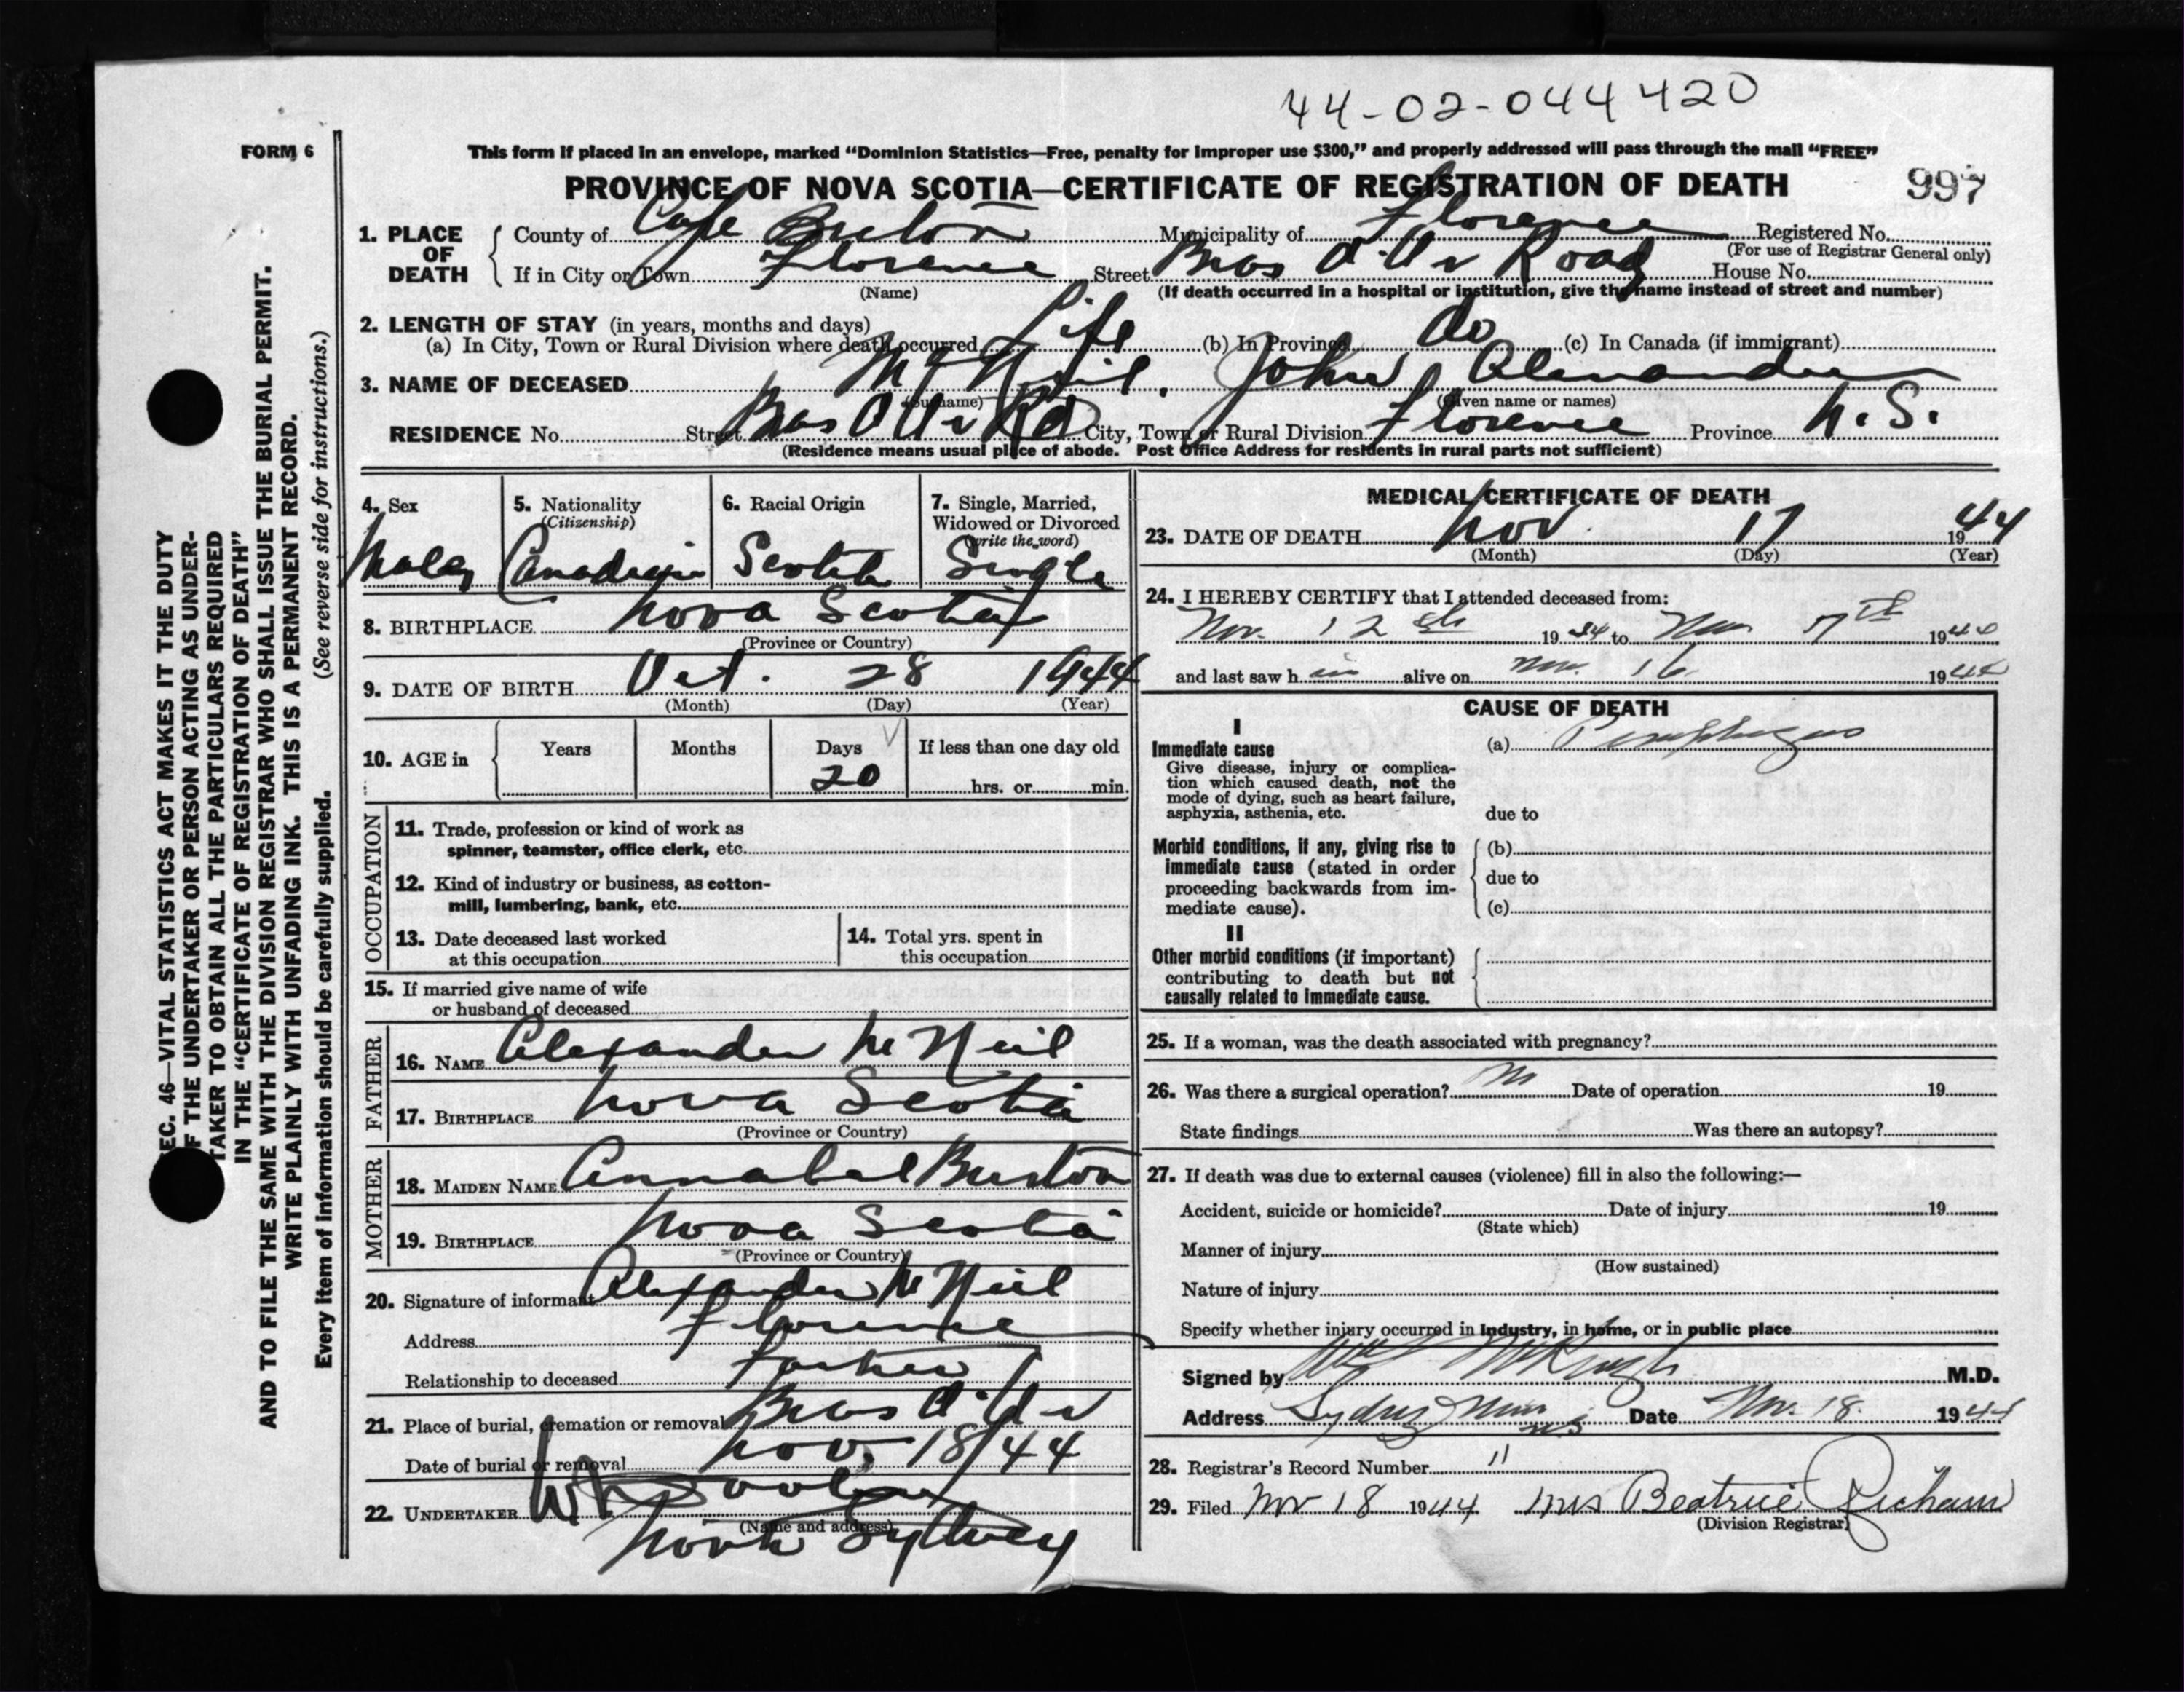 44-02-044420
FORM 6
This form if placed in an envelope, marked “Dominion Statistics—Free, penalty for improper use $300,” and properly addressed will pass through the mail “FREE”
PROVINCE OF NOVA SCOTIA—CERTIFICATE OF REGISTRATION OF DEATH 997
1. PLACE OF DEATH County of Cape Breton Municipality of Florence Registered No.
(For use of Registrar General only)
If in City or Town Florence Street Bras d'Or Road House No.
(Name) (If death occurred in a hospital or institution, give the name instead of street and number)
2. LENGTH OF STAY (in years, months and days)
(a) In City, Town or Rural Division where death occurred Life (b) In Province do (c) In Canada (if immigrant)
3. NAME OF DECEASED McNeil, John Alexander
(Surname) (Given name or names)
RESIDENCE No. Street Bras d'Or Rd City, Town or Rural Division Florence Province N.S.
(Residence means usual place of abode. Post Office Address for residents in rural parts not sufficient)
4. Sex 5. Nationality (Citizenship) 6. Racial Origin 7. Single, Married, Widowed or Divorced (write the word)
Male Canadian Scotch Single
8. BIRTHPLACE Nova Scotia
(Province or Country)
9. DATE OF BIRTH Oct. 28 1944
(Month) (Day) (Year)
10. AGE in Years Months Days If less than one day old
20 hrs. or min.
OCCUPATION
11. Trade, profession or kind of work as
spinner, teamster, office clerk, etc.
12. Kind of industry or business, as cotton-
mill, lumbering, bank, etc.
13. Date deceased last worked
at this occupation
14. Total yrs. spent in
this occupation
15. If married give name of wife
or husband of deceased
FATHER
16. NAME Alexander McNeil
17. BIRTHPLACE Nova Scotia
(Province or Country)
MOTHER
18. MAIDEN NAME Annabel
19. BIRTHPLACE Nova Scotia
(Province or Country)
20. Signature of informant Alexander McNeil
Address Florence
Relationship to deceased Father
21. Place of burial, cremation or removal Bras d'Or
Date of burial or removal Nov. 18/44
22. UNDERTAKER
(Name and address)
North Sydney
MEDICAL CERTIFICATE OF DEATH
23. DATE OF DEATH Nov. 17 1944
(Month) (Day) (Year)
24. I HEREBY CERTIFY that I attended deceased from:
Nov. 12th 19 44 to Nov 17th 1944
and last saw h im alive on Nov. 16 1944
CAUSE OF DEATH
I
Immediate cause (a) Pemphigus
Give disease, injury or complica-
tion which caused death, not the
mode of dying, such as heart failure,
asphyxia, asthenia, etc. due to
Morbid conditions, if any, giving rise to (b)
immediate cause (stated in order due to
proceeding backwards from im-
mediate cause). (c)
II
Other morbid conditions (if important)
contributing to death but not
causally related to immediate cause.
25. If a woman, was the death associated with pregnancy?
26. Was there a surgical operation? No Date of operation 19
State findings Was there an autopsy?
27. If death was due to external causes (violence) fill in also the following:—
Accident, suicide or homicide? Date of injury 19
(State which)
Manner of injury
(How sustained)
Nature of injury
Specify whether injury occurred in industry, in home, or in public place
Signed by M.D.
Address Sydney Mines NS Date Nov. 18 1944
28. Registrar's Record Number 11
29. Filed Nov 18 1944 Mrs Beatrice
(Division Registrar)
SEC. 46—VITAL STATISTICS ACT MAKES IT THE DUTY
OF THE UNDERTAKER OR PERSON ACTING AS UNDER-
TAKER TO OBTAIN ALL THE PARTICULARS REQUIRED
IN THE “CERTIFICATE OF REGISTRATION OF DEATH”
AND TO FILE THE SAME WITH THE DIVISION REGISTRAR WHO SHALL ISSUE THE BURIAL PERMIT.
WRITE PLAINLY WITH UNFADING INK. THIS IS A PERMANENT RECORD.
Every item of information should be carefully supplied. (See reverse side for instructions.)